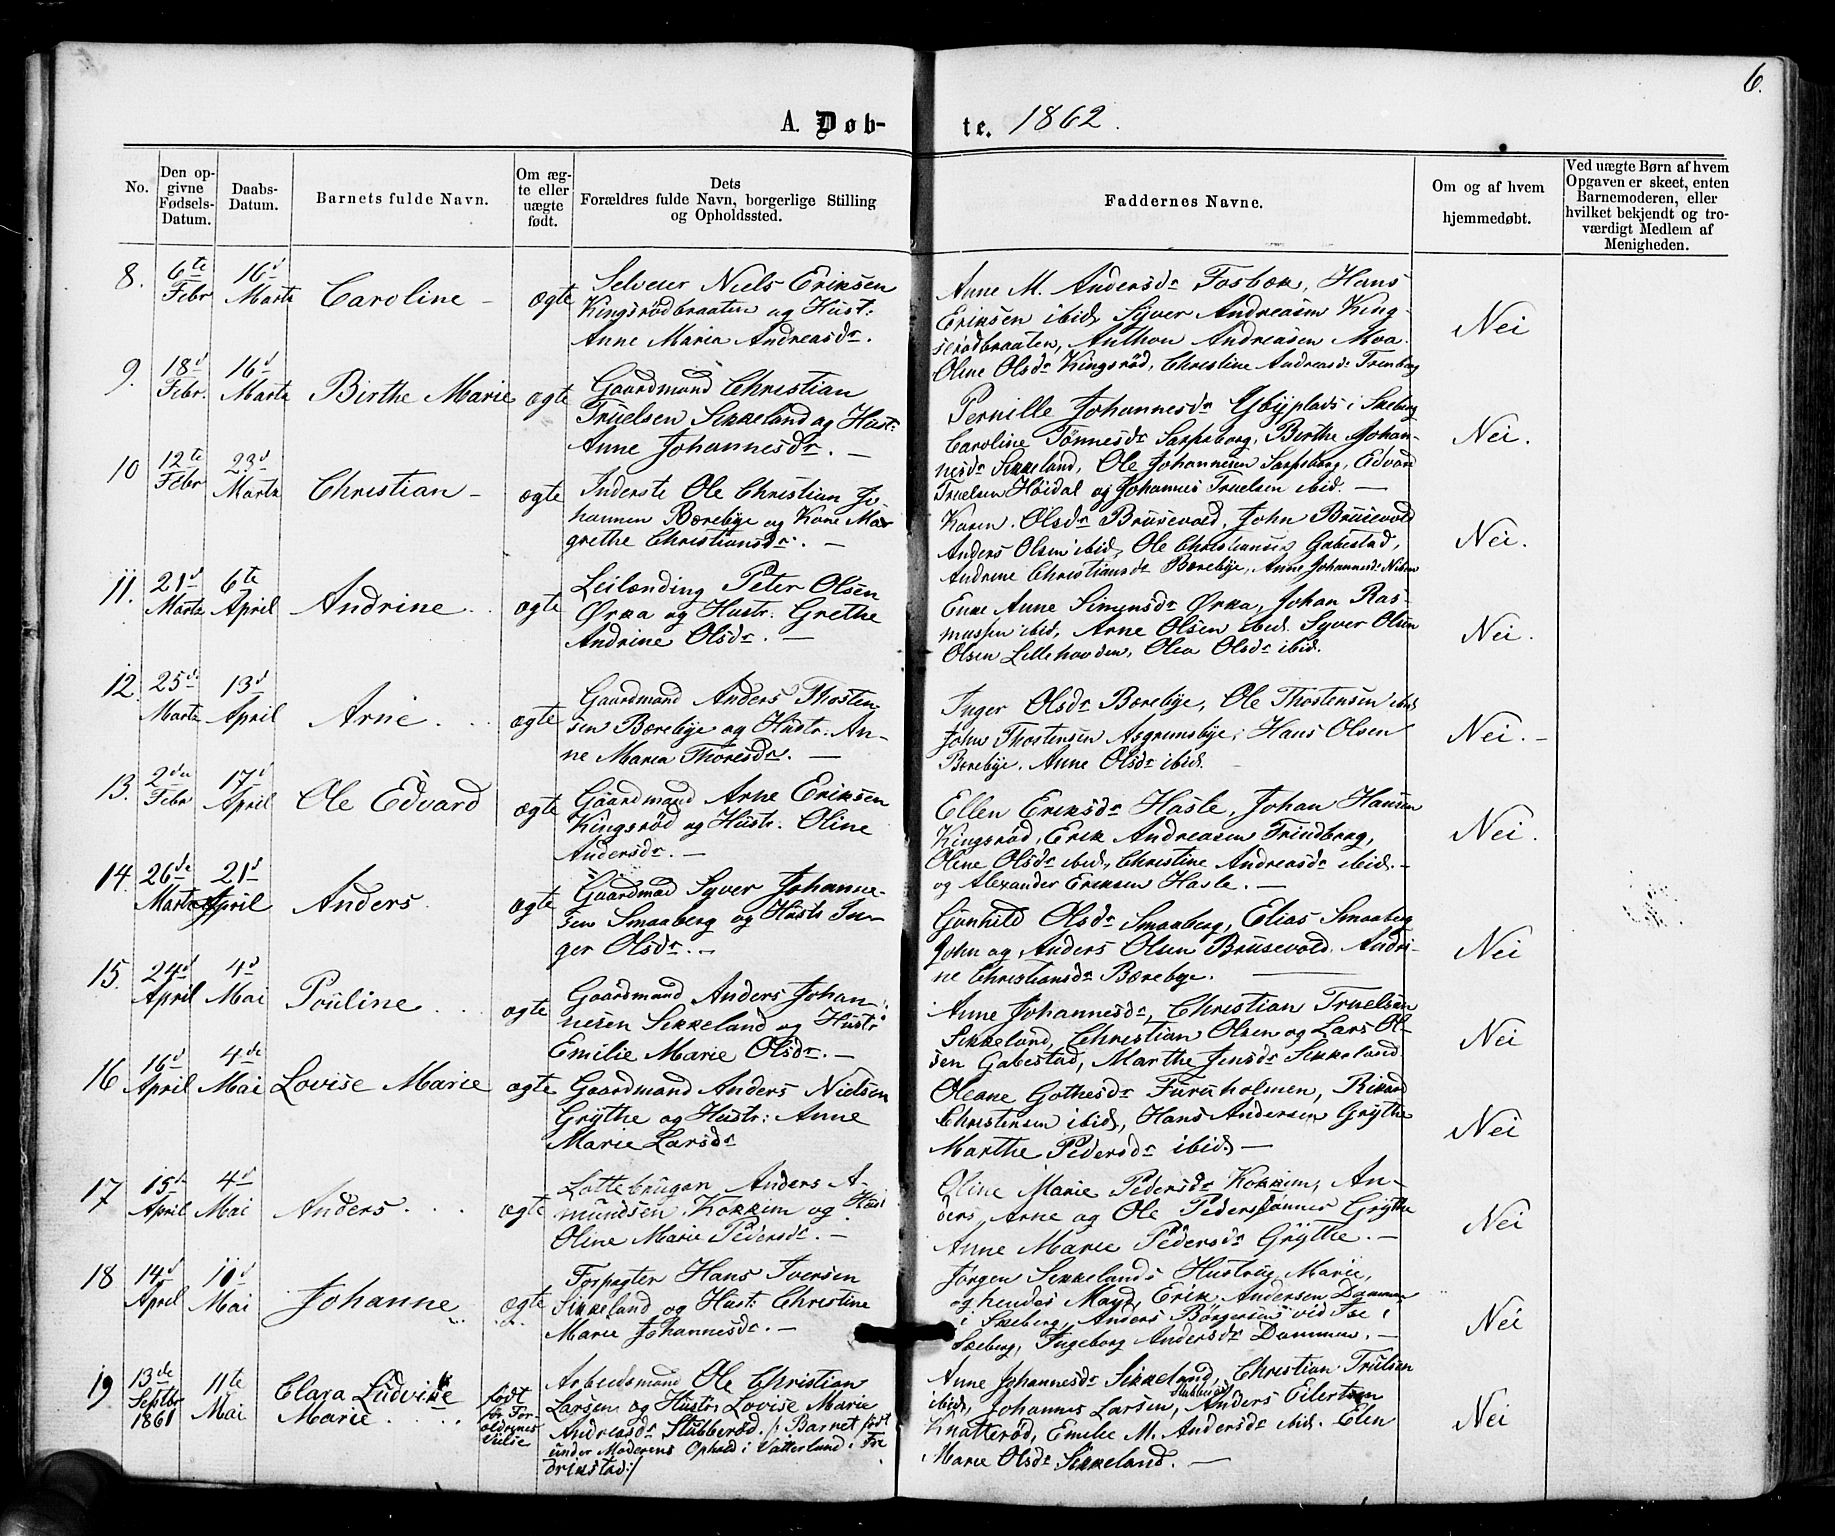 6.
A. Døb- te. 1862.
No.
Den op-
givne
Fødsels-
Datum.
Daabs-
Datum.
Barnets fulde Navn.
Om æg-
te eller
uægte
født.
Dets
Forældres fulde Navn, borgerlige Stilling
og Opholdssted.
Faddernes Navne.
Om og af hvem
hjemmedøbt.
Ved uægte Børn af hvem
Opgaven er skeet, enten
Barnemoderen, eller
hvilket bekjendt og tro-
værdigt Medlem af
Menigheden.
8. 6te Febr 16d Marts Caroline - ægte
Selveier Niels Eriksen
Kingsrødbraaten og Hust:
Anne Maria Andreasdr.
Anne M. Andersdr Fosbæk, Hans
Eriksen ibid, Syver Andreasen King-
serødbraaten, Anthon Andreasen Moa.
Oline Olsdr Kingsrød, Christine Andreasdr
Nei
9. 18d Febr. 16d Marts Birthe Marie ægte
Gaardmand Christian
Truelsen Sikkeland og Hust:
Anne Johannesdr. -
Pernille Johannesdr i Skeberg
Caroline Tønnesdr Sarpsborg, Birthe Johan-
nesdr Sikkeland, Ole Johannesen Sarpsborg, Edvard
Truelsen Høidal og Johannes Truelsen ibid. -
Nei.
10 12te Febr 23d Marts Christian - ægte
Inderste Ole Christian Jo-
hannen Bærebye og Kone Mar
grethe Christiansdr. -
Karen Olsdr Brusevold, John Brusevold
Anders Olsen ibid, Ole Christiansen Gabestad,
Andrine Christiansdr Bærebye, Anne Johannesdr
Nei.
11. 21d Marts 6te April Andrine . . ægte
Leilænding Peter Olsen
Ørka og Hustr: Grethe
Andrine Olsdr. -
Enke Anne Simensdr Ørka, Johan Ras-
mussen ibid, Arne Olsen ibid. Syver Olsen
Olsen Lillehovden, Olea Olsdr ibid.
Nei.
12. 25de Marts 13d April Arne . . . ægte
Gaardmand Anders Thosten-
sen Bærebye og Hustr: An-
ne Maria Thoresdr. -
Inger Olsdr Bærebye, Ole Thostensen ibid
John Thostensen Asgrimsbye, Hans Olsen
Bærebye. Anne Olsdr ibid. -
Nei. -
13. 2den Febr 17d April Ole Edvard ægte
Gaardmand Arne Eriksen
Kingsrød og Hustr: Oline
Andersdr. -
Ellen Eriksdr Hasle, Johan Hansen
Kingsrød, Erik Andreasen Trindborg,
Oline Olsdr ibid, Christine Andreasdr ibid. -
og Alexander Eriksen Hasle. -
Nei.
14. 26de Marts 21d April Anders. ægte
Gaardmad Syver Johanne-
sen Smaaberg og Hustr In-
ger Olsdr. -
Gunhild Olsdr Smaaberg, Elias Smaaberg
John og Anders Olsen Brusevold. Andri-
ne Christiansdr Bærebye.
Nei
15. 24d April 4d Mai Pouline . . . ægte
Gaardmand Anders Johan-
nesen Sikkeland og Hustr:
Emilie Marie Olsdr. -
Anne Johannesdr, Christian Truelsen
Sikkeland, Christian Olsen og Lars Ol-
sen Gabestad, Marthe Jensdr Sikkeland
Nei
16 16d April 4de Mai Lovise Marie ægte
Gaardmand Anders Nielsen
Grythe og Hustr: Anne
Marie Larsdr
Oleane Gothesdr Furuholmen, Rikard
Christensen ibid, Hans Andersen Grythe
Marthe Pedersdr ibid -
Nei
17 15de April 4d Mai Anders. . . ægte
Lottebruger Anders A-
mundsen Kokkim og Hust
Oline Marie Pedersdr. -
Oline Marie Pedersdr Kokkim, An-
ders, Arne og Ole Pederssønner Grythe
Anne Marie Pedersdr Grythe. -
Nei
18 14d April 11d Mai Johanne ægte
Forpagter Hans Iversen
Sikkeland og Hust: Christine
Marie Johannesdr. -
Jørgen Sikkelands Hustrue Marie,
og hendes Mayd, Erik Andersen Dammen
i Skeberg, Anders Børgersen ved Fse i
Skeberg, Ingeborg Andersdr Dammen. -
Nei
19 13de Septbr 1861 11te Mai Clara Ludvikke
Marie. . . .
født
før For-
ældrenes
Vielse
Arbeidsmand Ole Christian
Larsen og Hustr: Lovise Marie
Andreasdr Stubberød. /: Barnet født
under Moderens Ophold i Vatterland i Fre
drikstad:/
Anne Johannesdr Sikkeland, Christian Trulsen
ibid, Johannes Larsen, Stubberød Anders Eilertsen
Knatterød, Emilie M. Andersdr ibid. Elen
Marie Olsdr Sikkeland. -
Nei